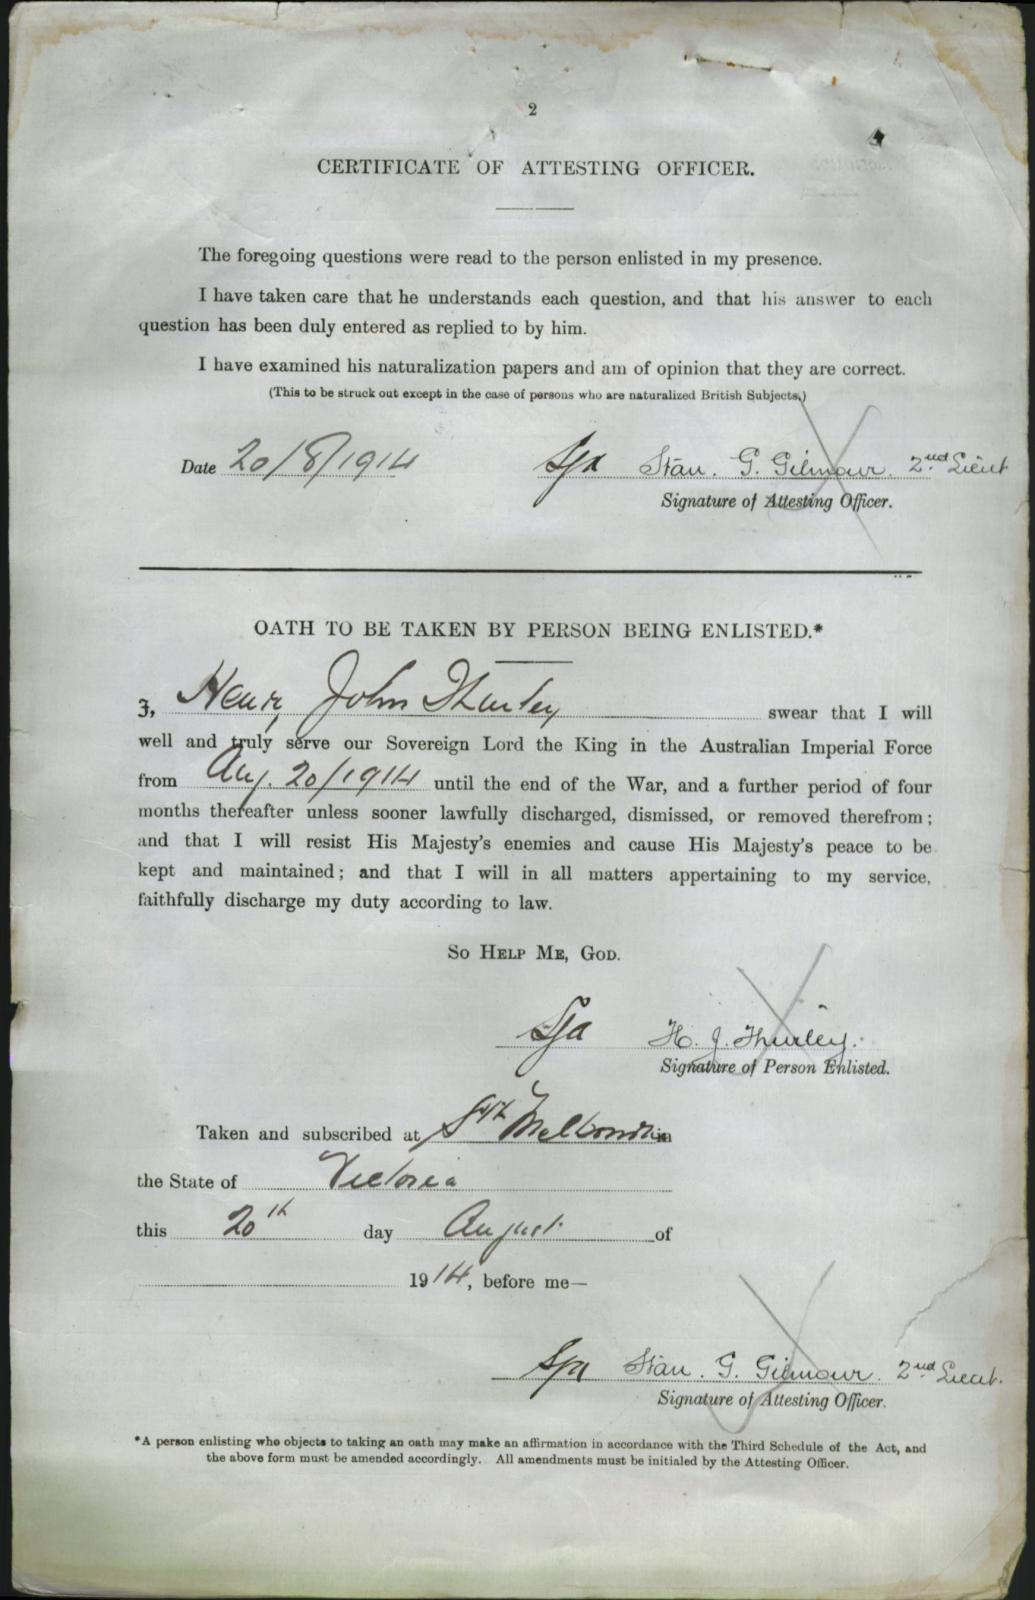 2
CERTIFICATE OF ATTESTING OFFICER.
The foregoing questions were read to the person enlisted in my presence.
I have taken care that he understands each question, and that his answer to each
question has been duly entered as replied to by him.
I have examined his naturalization papers and am of opinion that they are correct.
(This to be struck out except in the case of persons who are naturalized British Subjects.)
Date 20/8/1914 Sgd Stan. G. Gilmour. 2nd Lieut
Signature of Attesting Officer.
OATH TO BE TAKEN BY PERSON BEING ENLISTED.*
I, Henry John Thurley swear that I will
well and truly serve our Sovereign Lord the King in the Australian Imperial Force
from Aug. 20/1914 until the end of the War, and a further period of four
months thereafter unless sooner lawfully discharged, dismissed, or removed therefrom;
and that I will resist His Majesty's enemies and cause His Majesty's peace to be
kept and maintained; and that I will in all matters appertaining to my service,
faithfully discharge my duty according to law.
SO HELP ME, GOD.
Sgd H. J. Thurley.
Signature of Person Enlisted.
Taken and subscribed at Sth Melbourne in
the State of Victoria
this 20th day August of
1914, before me—
Sgd Stan. G. Gilmour. 2nd Lieut.
Signature of Attesting Officer.
*A person enlisting who objects to taking an oath may make an affirmation in accordance with the Third Schedule of the Act, and
the above form must be amended accordingly. All amendments must be initialed by the Attesting Officer.